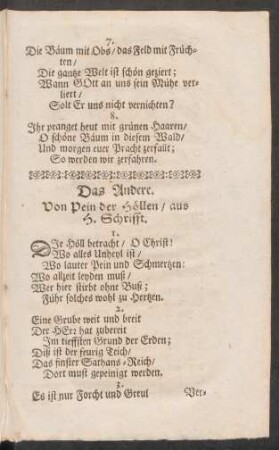 7.
Die Bäum mit Obs/ das Feld mit Früch-
ten/
Die gantze Welt ist schön geziert;
Wann GOtt an uns sein Mühe ver-
liert/
Solt Er uns nicht vernichten?
8.
Ihr pranget heut mit grünen Haaren/
O schöne Bäum in diesem Wald/
Und morgen euer Pracht zerfallt;
So werden wir zerfahren.
Das Andere.
Von Pein der Höllen/ aus
H. Schrifft.
1.
DIe Höll betracht/ O Christ!
Wo alles Unheyl ist/
Wo lauter Pein und Schmertzen:
Wo allzeit leyden muß/
Wer hier stirbt ohne Buß;
Führ solches wohl zu Hertzen.
2.
Eine Grube weit und breit
Der HErr hat zubereit
Im tieffsten Grund der Erden;
Diß ist der feurig Teich/
Das finster Sathans-Reich/
Dort muß gepeinigt werden.
3.
Es ist nur Forcht und Greul
Ver-